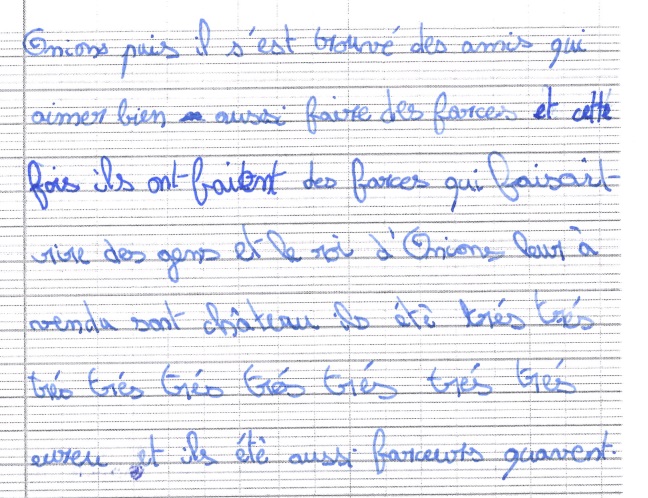 Onions puis il s'est trouvé des amis qui
aimer bien aussi faire des farces et cette
fois ils ont faitent des farces qui faisait
rire des gens et le roi d'Onions leur à
vendu sont château ils été trés trés
trés trés trés trés trés trés trés
eureu et ils été aussi farceurs quavent.